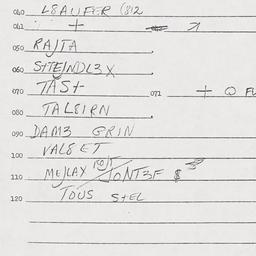 040 LEAUFER (812
041 +
050 RAJTA
060 STTEINDL3X
070 TAST 071 + O FU
080 TALEIRN
090 DAM3 GRIN
100 VAL8ET
110 MEJLAY ROJT JONT3F $
120 TOUS STEL